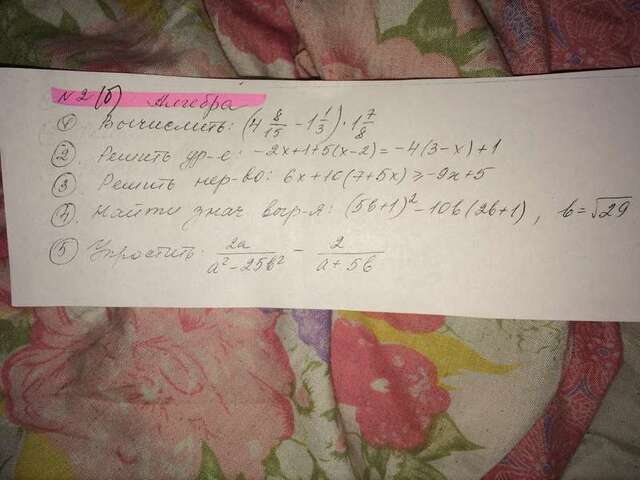 N2(б) Алгебра
① Вычислить: (4 8/15 - 1 1/3) · 1 7/8
② Решить ур-е: -2x+1+5(x-2)=-4(3-x)+1
③ Решить нер-во: 6x+10(7+5x) ≥ -9x+5
④ Найти знач выр-я: (5b+1)² - 10b(2b+1), b=√29
⑤ Упростить: 2a/(a²-25b²) - 2/(a+5b)